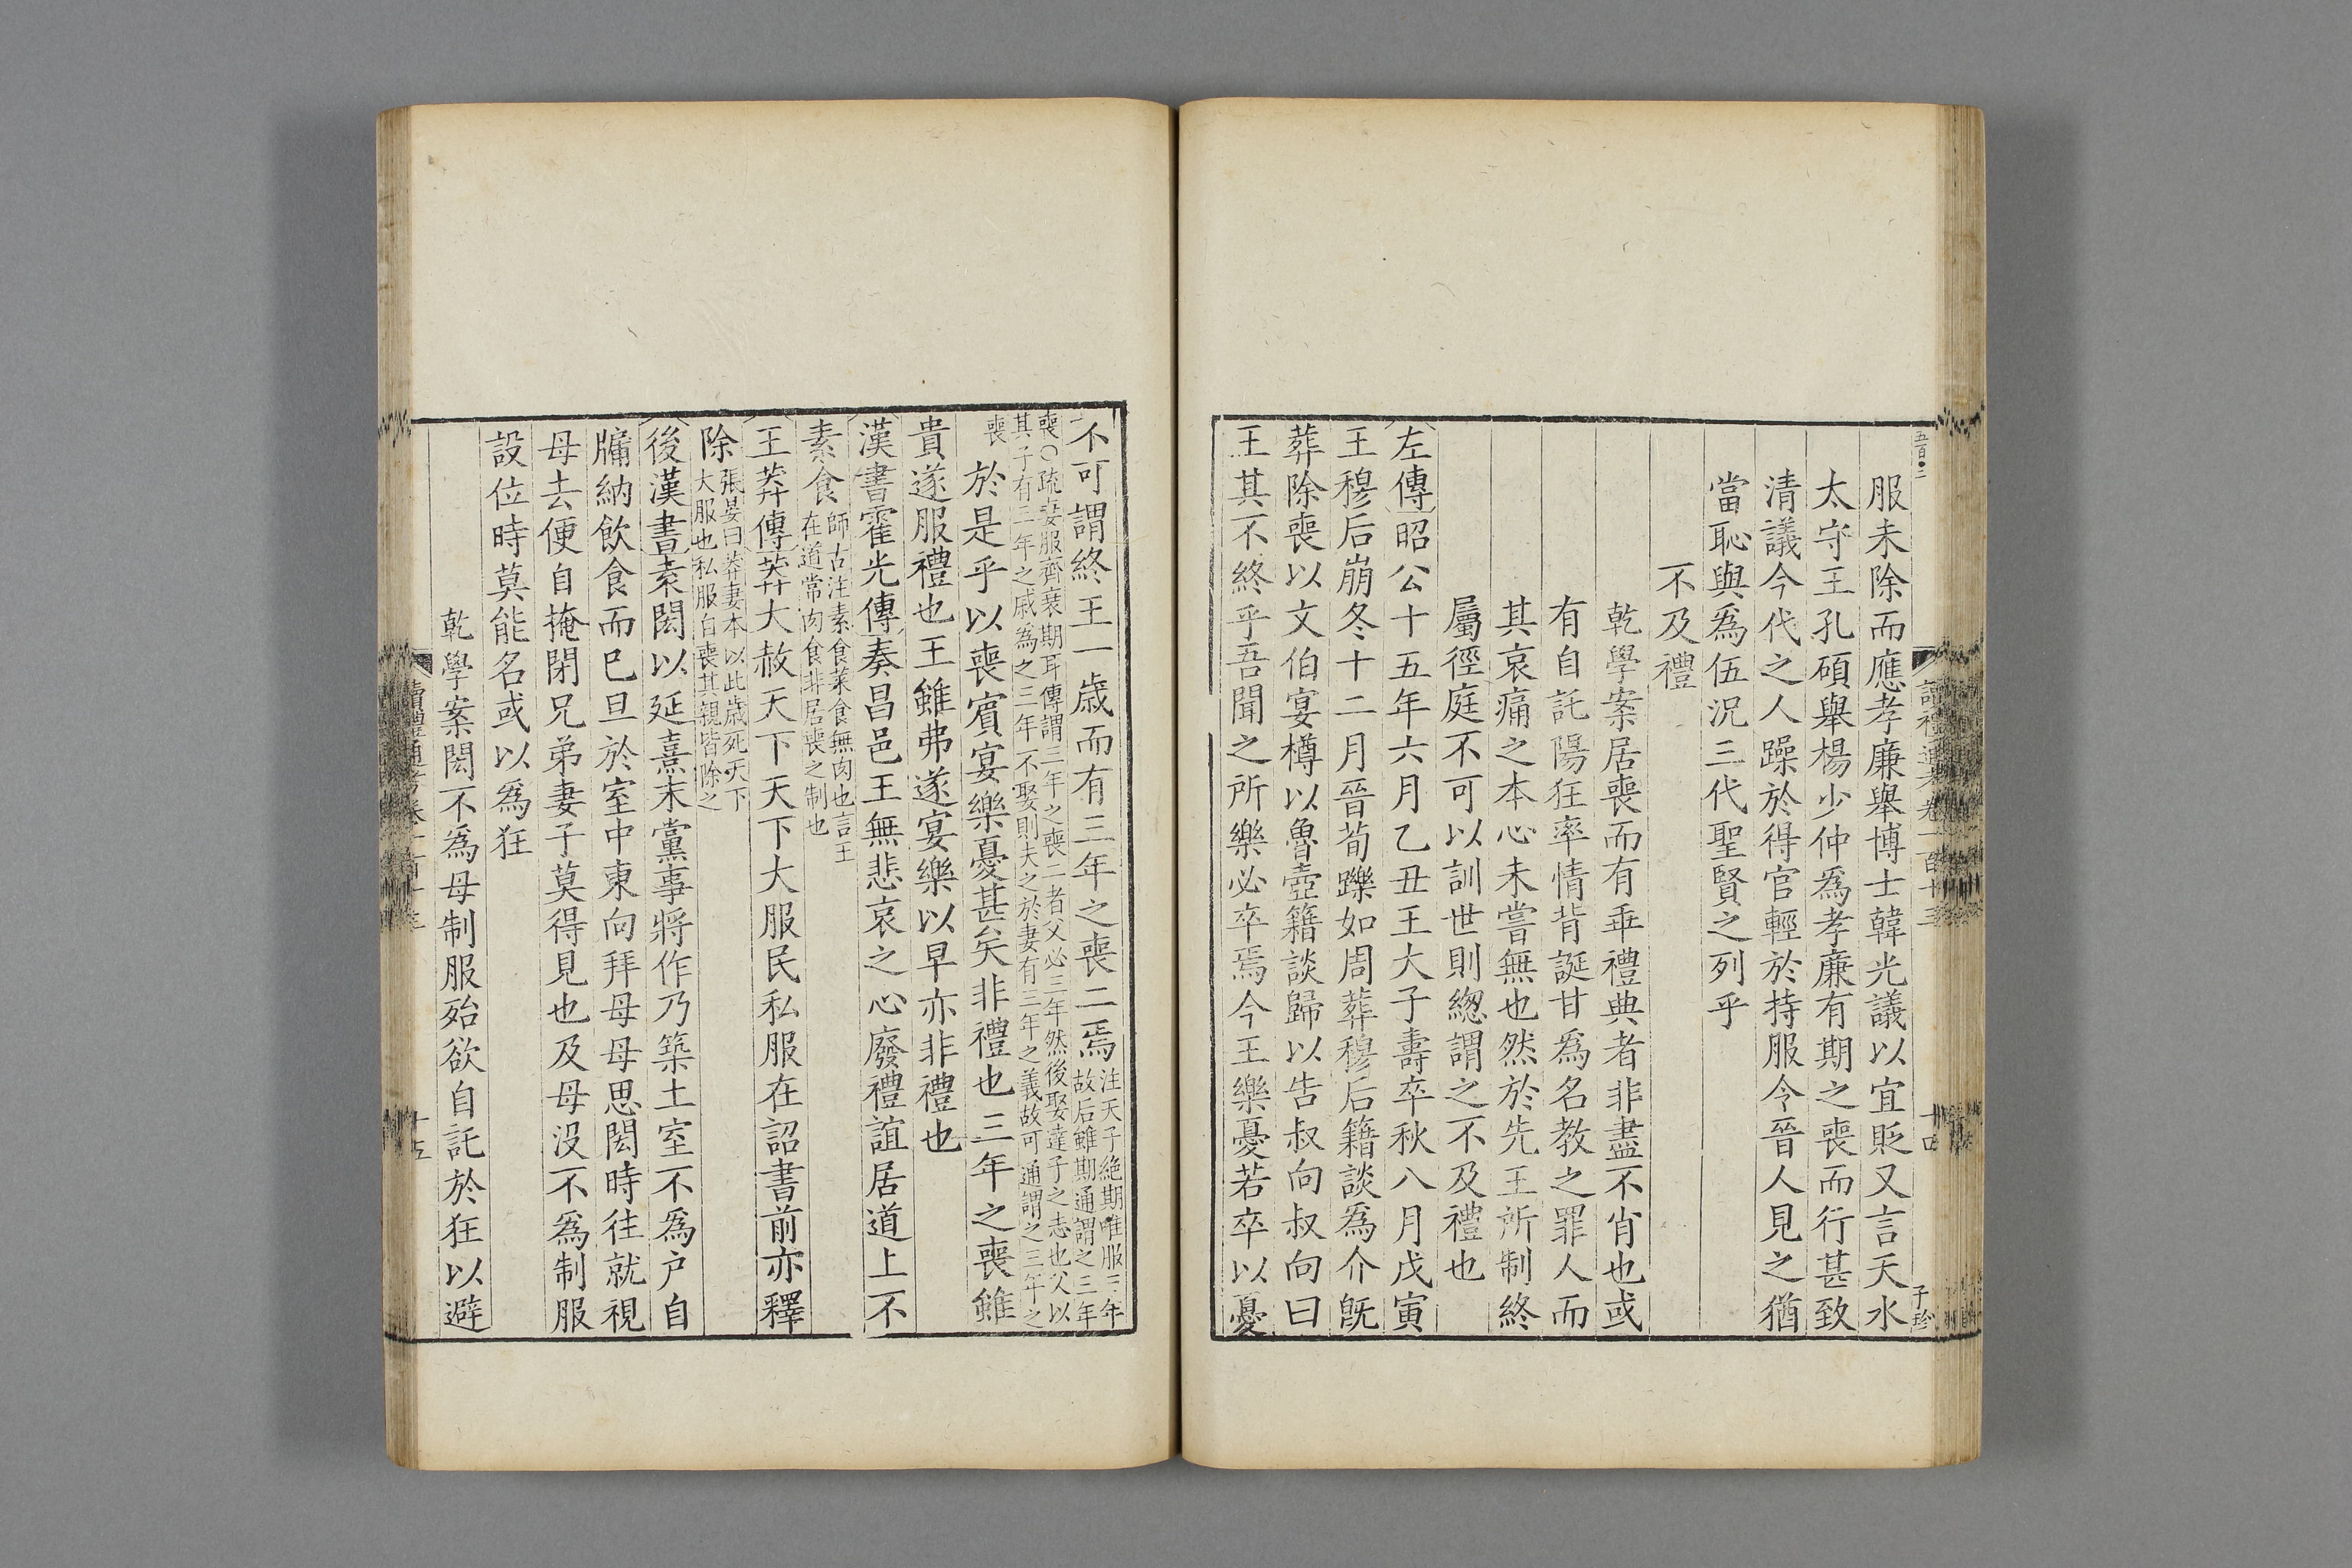 五百二
讀禮通考卷一百十三
十四
子珍
服未除而應孝廉舉博士韓光議以宜貶又言天水
太守王孔碩舉楊少仲爲孝廉有期之喪而行甚致
清議今代之人躁於得官輕於持服令晉人見之猶
當恥與爲伍況三代聖賢之列乎
不及禮
乾學案居喪而有乖禮典者非盡不肖也或
有自託陽狂率情背誕甘爲名教之罪人而
其哀痛之本心未嘗無也然於先王所制終
屬徑庭不可以訓世則緫謂之不及禮也
左傳昭公十五年六月乙丑王大子壽卒秋八月戊寅
王穆后崩冬十二月晉荀躒如周葬穆后籍談爲介旣
葬除喪以文伯宴樽以魯壺籍談歸以告叔向叔向曰
王其不終乎吾聞之所樂必卒焉今王樂憂若卒以憂
不可謂終王一歲而有三年之喪二焉注天子絶期唯服三年
故后雖期通謂之三年
喪○疏妻服齊衰期耳傳謂三年之喪二者父必三年然後娶達子之志也父以
其子有三年之戚爲之三年不娶則夫之於妻有三年之義故可通謂之三年之
喪
於是乎以喪賓宴樂憂甚矣非禮也三年之喪雖
貴遂服禮也王雖弗遂宴樂以早亦非禮也
漢書霍光傳奏昌邑王無悲哀之心廢禮誼居道上不
素食師古注素食菜食無肉也言王
在道常肉食非居喪之制也
王莽傳莽大赦天下天下大服民私服在詔書前亦釋
除張晏曰莽妻本以此歲死天下
大服也私服自喪其親皆除之
後漢書袁閎以延熹末黨事將作乃築土室不爲户自
牖納飲食而已旦於室中東向拜母母思閎時往就視
母去便自掩閉兄弟妻子莫得見也及母没不爲制服
設位時莫能名或以爲狂
乾學案閎不爲母制服殆欲自託於狂以避
讀禮通考卷一百十三
十五